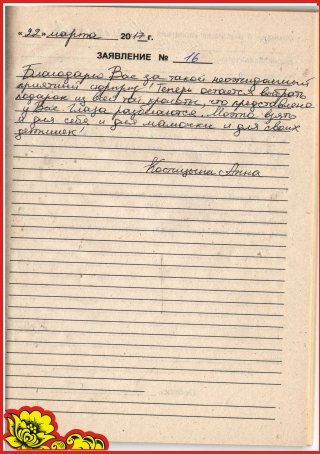 «22» марта 2017 г.
ЗАЯВЛЕНИЕ № 16
Благодарю Вас за такой неожиданный
приятный сюрприз! Теперь остается выбрать
подарок из всей той красоты, что представлена
у Вас. Глаза разбегаются. Можно взять
и для себя и для мамочки и для своих
детишек!
Костицына Анна